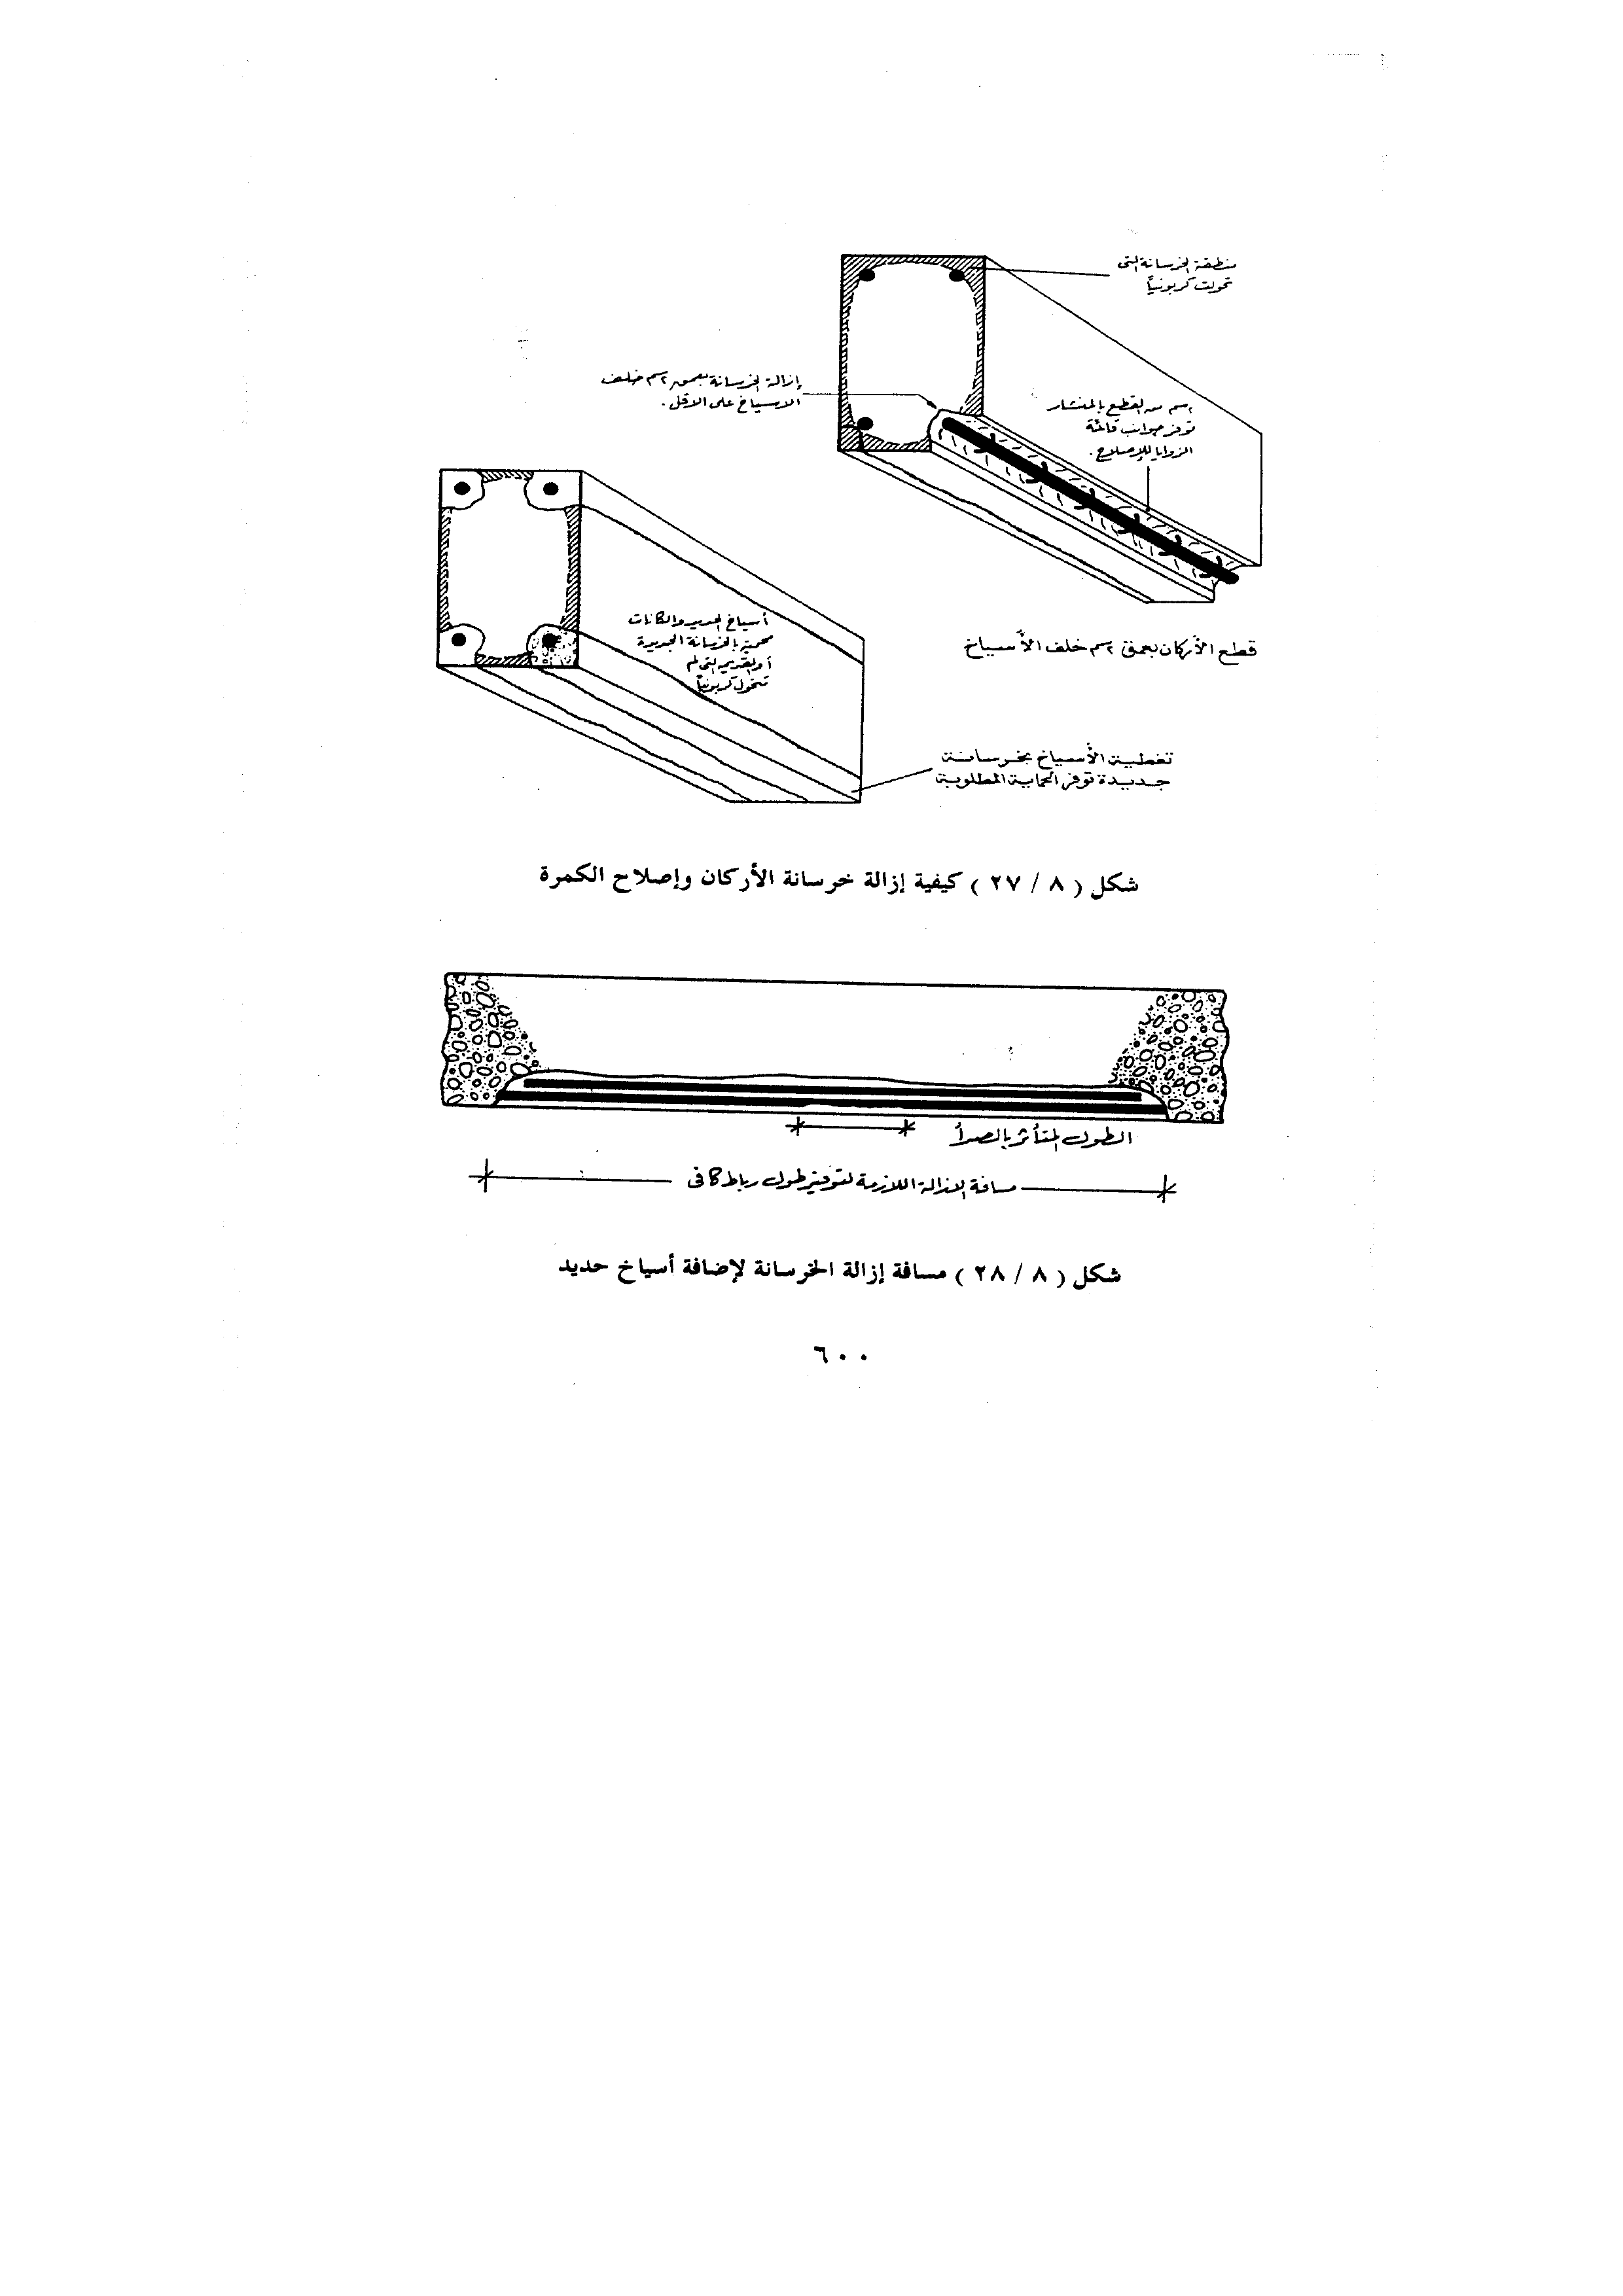 منطقة الخرسانة التى
تحولت كربونياً
إزالة الخرسانة بعمق ٢سم خلف
الأسياخ على الاقل .
١سم من القطع بالمنشار
توفر جوانب قائمة
الزوايا للإصلاح .
أسياخ الحديد والكانات
محمية بالخرسانة الجديدة
أو القديمة التى لم
تتحول كربونياً
قطع الأركان بعمق ٢سم خلف الأسياخ
تغطية الأسياخ بخرسانة
جديدة توفر الحماية المطلوبة
شكل ( ٨ / ٢٧ ) كيفية إزالة خرسانة الأركان وإصلاح الكمرة
الطول المتأثر بالصدأ
مسافة الازالة اللازمة لتوفير طول رباط كافى
شكل ( ٨ / ٢٨ ) مسافة إزالة الخرسانة لإضافة أسياخ حديد
٦٠٠